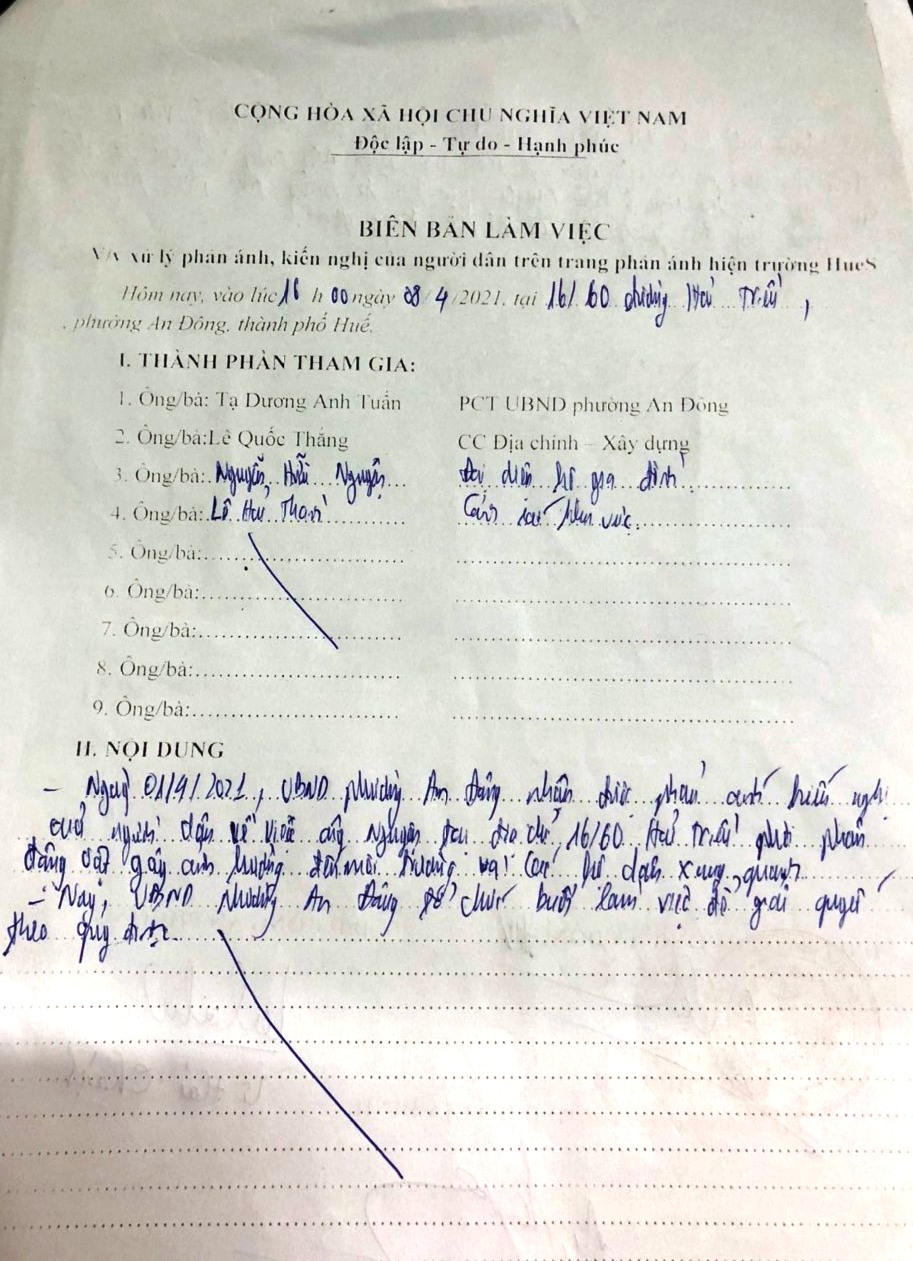 CỘNG HÒA XÃ HỘI CHỦ NGHĨA VIỆT NAM
Độc lập - Tự do - Hạnh phúc
BIÊN BẢN LÀM VIỆC
V/v xử lý phản ánh, kiến nghị của người dân trên trang phản ánh hiện trường HueS
Hôm nay, vào lúc 16 h 00 ngày 08/4/2021, tại 16/60 đường Hải Triều,
, phường An Đông, thành phố Huế.
I. THÀNH PHẦN THAM GIA:
1. Ông/bà: Tạ Dương Anh Tuấn PCT UBND phường An Đông
2. Ông/bà:Lê Quốc Thắng CC Địa chính – Xây dựng
3. Ông/bà: Nguyễn Hữu Nguyện Đại diện hộ gia đình
4. Ông/bà: Lê Hải Thanh Cảnh sát khu vực
5. Ông/bà:
6. Ông/bà:
7. Ông/bà:
8. Ông/bà:
9. Ông/bà:
II. NỘI DUNG
- Ngày 01/4/2021, UBND phường An Đông nhận được phản ánh kiến nghị
của người dân về việc ông Nguyện tại địa chỉ 16/60 Hải Triều phơi phân
động vật gây ảnh hưởng đến môi trường và các hộ dân xung quanh
- Nay, UBND phường An Đông tổ chức buổi làm việc để giải quyết
theo quy định.